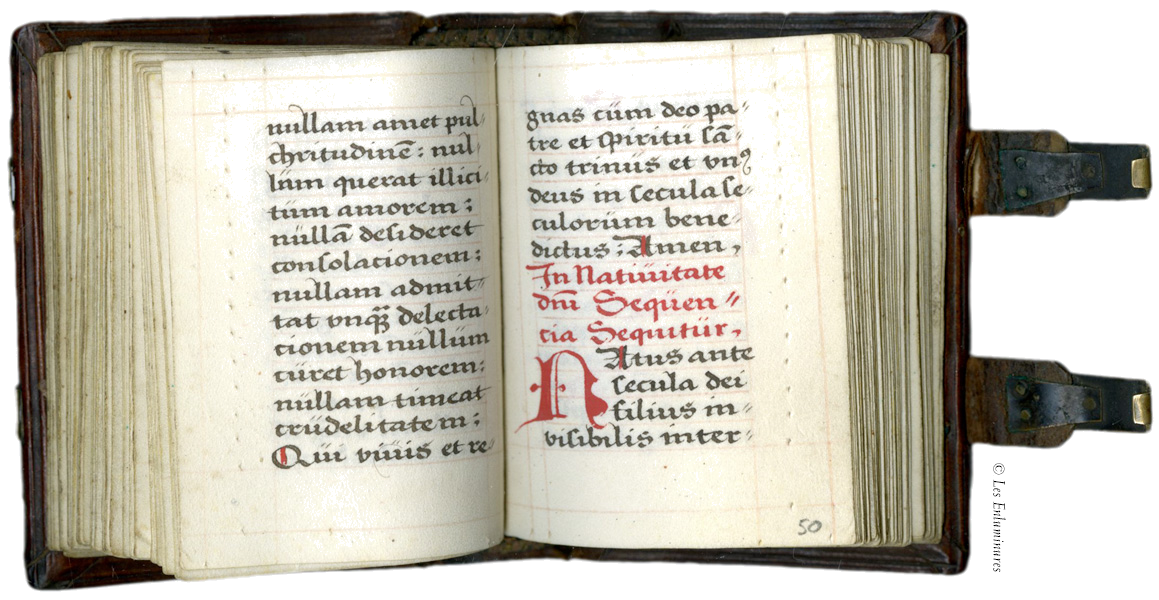 nullam amet pul-
chritudinē: nul-
lüm querat illici-
tüm amorem;
nüllā desideret
consolacionem;
nullam admit-
tat vnqȝ delecta-
cionem nüllüm
cüret honorem:
nüllam timeat
crüdelitatem;
Qui viüis et re-
gnas cüm deo pa-
tre et spiritü sā-
cto trinüs et vnꝰ
deus in secula se-
culorüm bene-
dictus; Amen,
In Natiüitate
dn̄i Seqüen-
cia Sequitür,
NAtus ante
secula dei
filius in-
visibilis inter-
50
© Les Enluminures